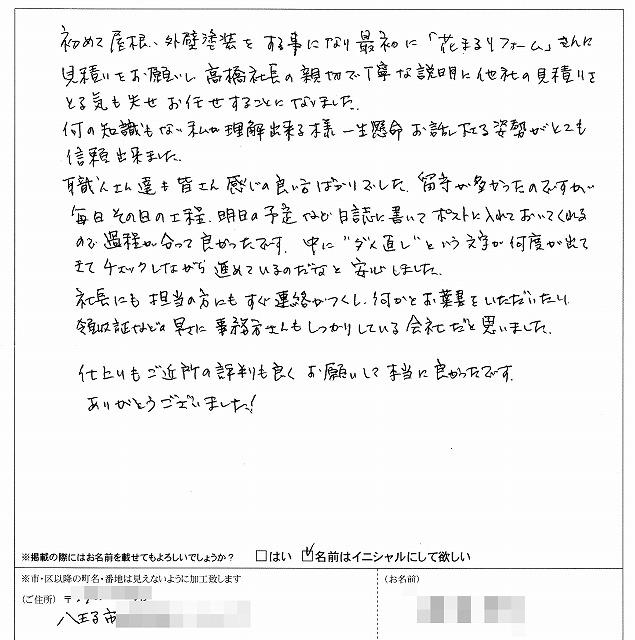 初めて屋根、外壁塗装をする事になり最初に「花まるリフォーム」さんに
見積りをお願いし高橋社長の親切で丁寧な説明に他社の見積りを
とる気も失せお任せすることになりました。
何の知識もない私が理解出来る様一生懸命お話して下さる姿勢がとても
信頼出来ました。
職人さん達も皆さん感じの良い方ばかりでした。留守が多かったのですが
毎日その日の工程、明日の予定など日誌に書いてポストに入れておいてくれる
ので過程が分って良かったです。中に"ダメ直し"という文字が何度か出て
きてチェックしながら進めているのだなと安心しました。
社長にも担当の方にもすぐ連絡がつくし、何かとお葉書をいただいたり、
領収証などの早さに事務方さんもしっかりしている会社だと思いました。
仕上りもご近所の評判も良くお願いして本当に良かったです。
ありがとうございました!
※掲載の際にはお名前を載せてもよろしいでしょうか? □はい ☑名前はイニシャルにして欲しい
※市・区以降の町名・番地は見えないように加工致します
(お名前)
(ご住所) 〒
八王子市